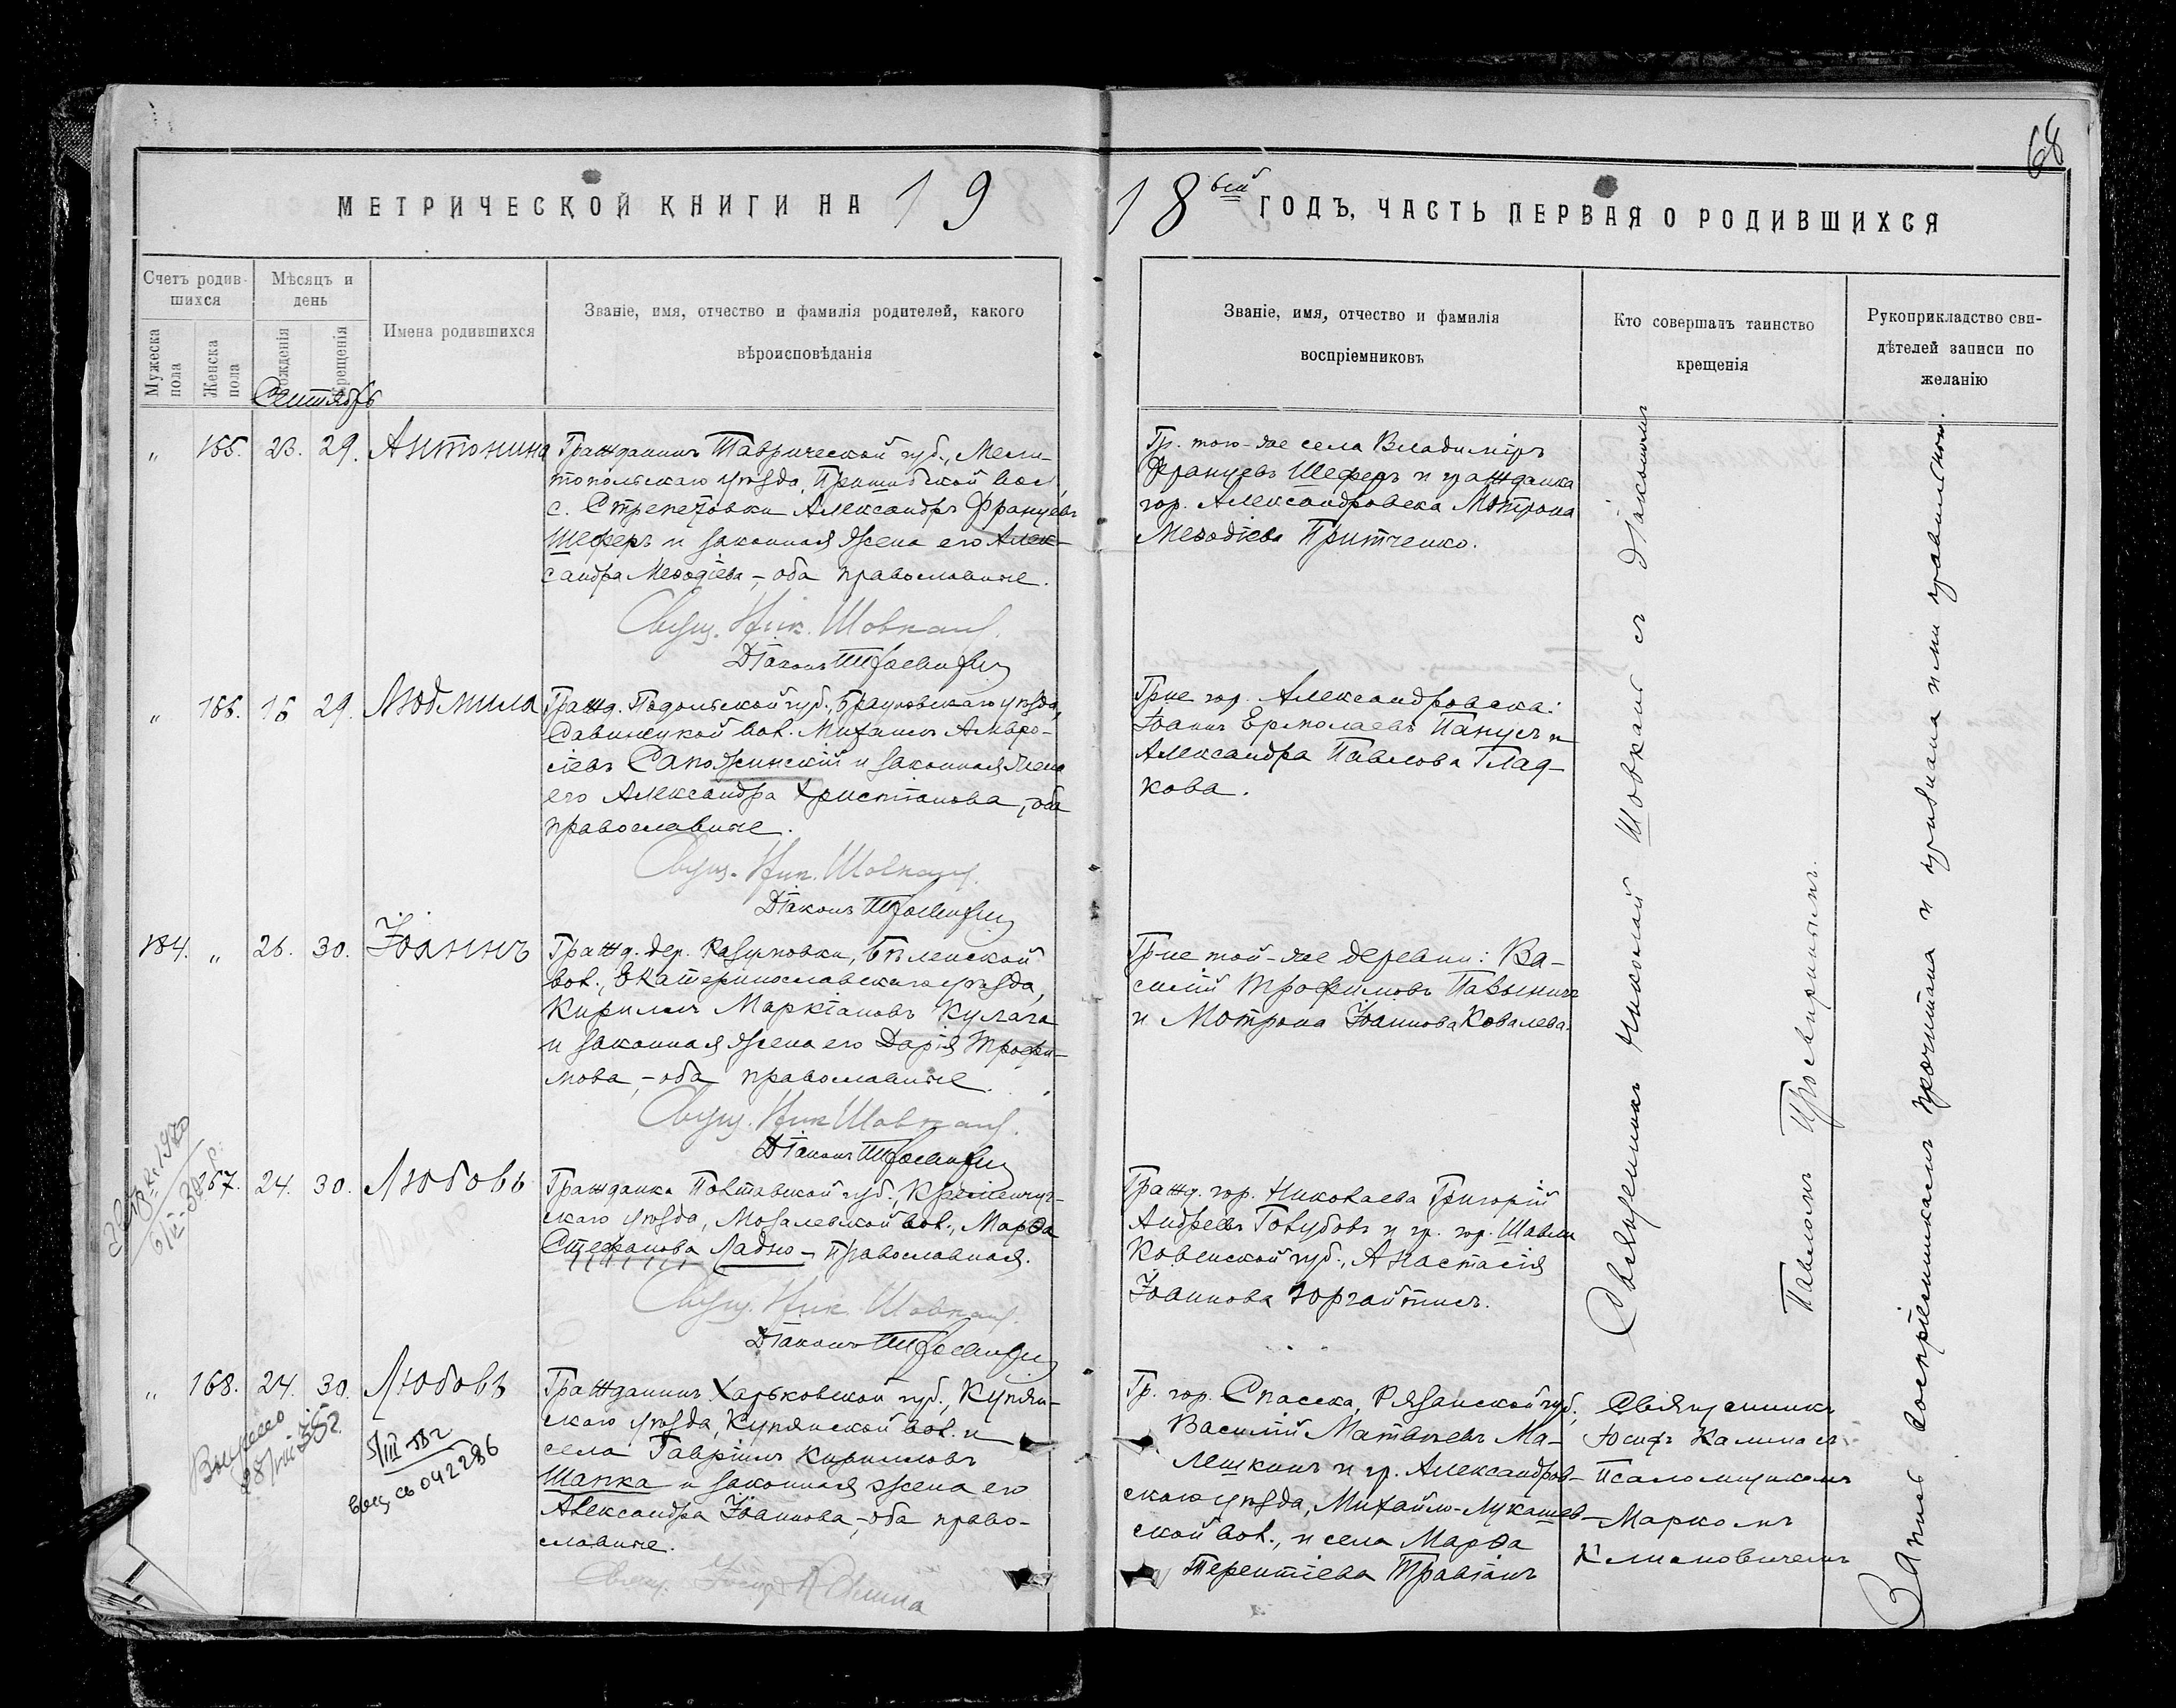 68
МЕТРИЧЕСКОЙ КНИГИ НА 19
18 ый ГОДЪ, ЧАСТЬ ПЕРВАЯ О РОДИВШИХСЯ
Счетъ родив-
шихся
Мужеска пола
Женска пола
Мѣсяцъ и
день
рожденія
крещенія
Имена родившихся
Званіе, имя, отчество и фамилія родителей, какого
вѣроисповѣданія
Званіе, имя, отчество и фамилія
воспріемниковъ
Кто совершалъ таинство
крещенія
Рукоприкладство сви-
дѣтелей записи по
желанію
Сентябрь
„ 165. 23. 29. Антонина
Гражданинъ Таврической губ., Мели-
топольскаго уѣзда, Пришибской вол.,
с. Стрепетовки Александръ Францевъ
Шеферъ и законная жена его Алек-
сандра Меѳодіева, – оба православные.
Свящ. Ник. Шовкаль.
Діаконъ
Гр. того-же села Владиміръ
Францевъ Шеферъ и гражданка
гор. Александровска Мотрона
Меѳодіева Притченко.
„ 166. 16 29. Людмила
Гражд. Подольской губ., Брацловскаго уѣзда,
Савинецкой вол. Михаилъ Амвро-
сіевъ Сапожинскій и законная жена
его Александра Христіанова, – оба
православные.
Свящ. Ник. Шовкаль.
Діаконъ
Гр-не гор. Александровска:
Іоаннъ Ермолаевъ Панусъ и
Александра Павлова Глад-
кова.
184. „ 26. 30. Іоаннъ
Гражд. дер. Разумовки, Бѣленской
вол., Екатеринославскаго уѣзда,
Кириллъ Маркіановъ Кулага
и законная жена его Дарія Трофи-
мова, – оба православные.
Свящ. Ник. Шовкаль.
Діаконъ
Гр-не той-же деревни: Ва-
силій Трофимовъ
и Мотрона Іоаннова Ковалева.
167. 24. 30. Любовь
Гражданка Полтавской губ., Кременчуг-
скаго уѣзда, вол., Марѳа
Стефанова Ладно – православная.
Свящ. Ник. Шовкаль.
Діаконъ
Гражд. гор. Николаева Григорій
Андреевъ Голубовъ и гр. гор. Шавли
Ковенской губ., Анастасія
Іоаннова Юргайтисъ.
„ 168. 24. 30. Любовь
Гражданинъ Харьковской губ., Купян-
скаго уѣзда, Купянской вол. и
села Гавріилъ Кирилловъ
Шапка и законная жена его
Александра Іоаннова, – оба право-
славные.
Свящ. Іосифъ Калина
Гр. гор. Спасска, Рязанской губ.,
Василій Матвѣевъ Ма-
лешкинъ и гр. Александров-
скаго уѣзда, Михайло-Лукашев-
ской вол., и села Марѳа
Терентіева Травіанъ
Священникъ
Іосифъ Калина съ
Псаломщикомъ
Маркомъ
Климовичемъ
Священникъ Николай Шовкаль съ діакономъ
Павломъ
Запись воспріемникамъ прочитана и признана ими правильною.